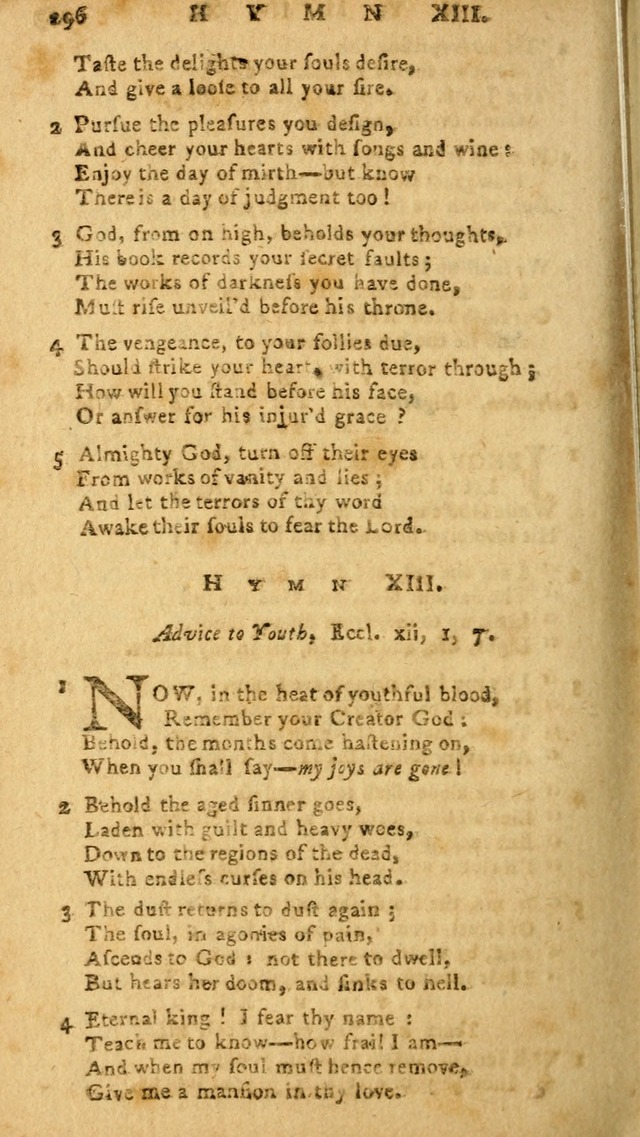 296 H Y M N XIII.
Taſte the delights your ſouls deſire,
And give a looſe to all your fire.
2 Purſue the pleaſures you deſign,
And cheer your hearts with ſongs and wine:
Enjoy the day of mirth—but know
There is a day of judgment too!
3 God, from on high, beholds your thoughts,
His book records your ſecret faults;
The works of darkneſs you have done,
Muſt riſe unveil'd before his throne.
4 The vengeance, to your follies due,
Should ſtrike your heart, with terror through;
How will you ſtand before his face,
Or anſwer for his injur'd grace?
5 Almighty God, turn off their eyes
From works of vanity and lies;
And let the terrors of thy word
Awake their ſouls to fear the Lord.
H Y M N XIII.
Advice to Youth, Eccl. xii, 1, 7.
1 NOW, in the heat of youthful blood,
Remember your Creator God:
Behold, the months come haſtening on,
When you ſhall ſay—my joys are gone!
2 Behold the aged ſinner goes,
Laden with guilt and heavy woes,
Down to the regions of the dead,
With endleſs curſes on his head.
3 The duſt returns to duſt again;
The ſoul, in agonies of pain,
Aſcends to God: not there to dwell,
But hears her doom, and ſinks to hell.
4 Eternal king! I fear thy name:
Teach me to know—how frail I am—
And when my ſoul muſt hence remove,
Give me a manſion in thy love.